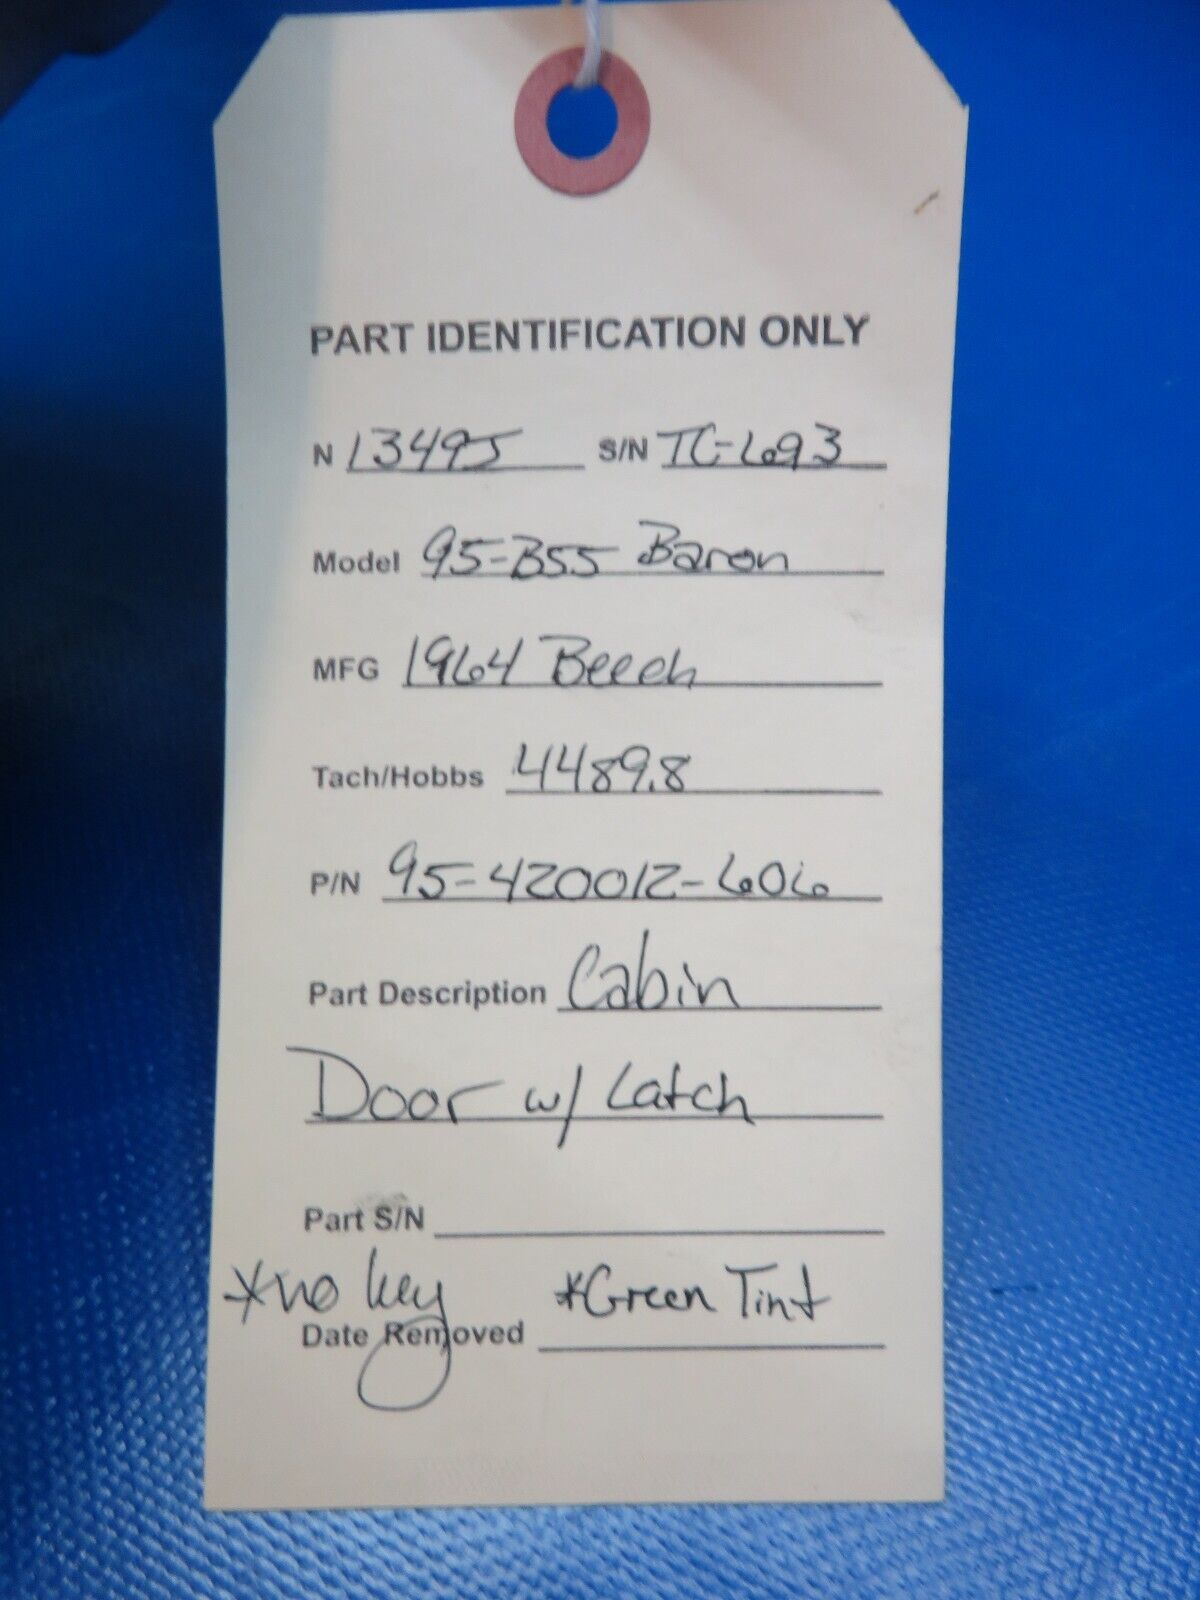 PART IDENTIFICATION ONLY
N 13495 S/N TC-693
Model 95-B55 Baron
MFG 1964 Beech
Tach/Hobbs 4489.8
P/N 95-420012-606
Part Description Cabin
Door w/ Latch
Part S/N
*no key *Green Tint
Date Removed